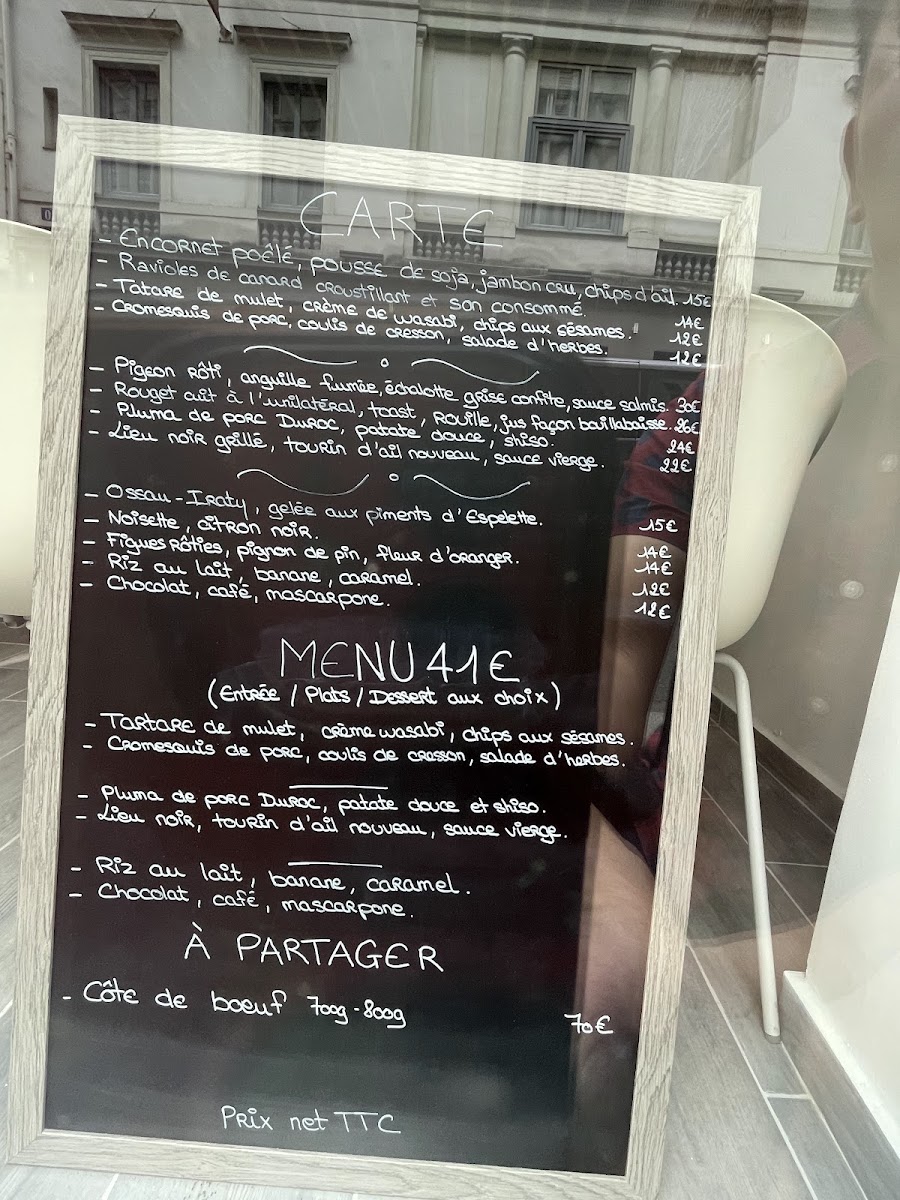 CARTE
- Encornet poêlé, pousse de soja, jambon cru, chips d'ail. 15€
- Ravioles de canard croustillant et son consommé. 14€
- Tatare de mulet, crème de wasabi, chips aux sésames. 12€
- Cromesquis de porc, coulis de cresson, salade d'herbes. 12€
- Pigeon rôti, anguille fumée, échalotte grise confite, sauce salmis. 30€
- Rouget cuit à l'unilatéral, toast, Rouille, jus façon bouillabaisse. 26€
- Pluma de porc Duroc, patate douce, shiso. 24€
- Lieu noir grillé, tourin d'ail nouveau, sauce vierge. 22€
- Ossau-Iraty, gelée aux piments d'Espelette. 15€
- Noisette, citron noir. 14€
- Figues Rôties, pignon de pin, fleur d'oranger. 14€
- Riz au lait, banane, caramel. 12€
- Chocolat, café, mascarpone. 12€
MENU 41€
(Entrée / Plats / Dessert aux choix)
- Tartare de mulet, crème wasabi, chips aux sésames.
- Cromesquis de porc, coulis de cresson, salade d'herbes.
- Pluma de porc Duroc, patate douce et shiso.
- Lieu noir, tourin d'ail nouveau, sauce vierge.
- Riz au lait, banane, caramel.
- Chocolat, café, mascarpone.
À PARTAGER
- Côte de boeuf 700g-800g 70€
Prix net TTC